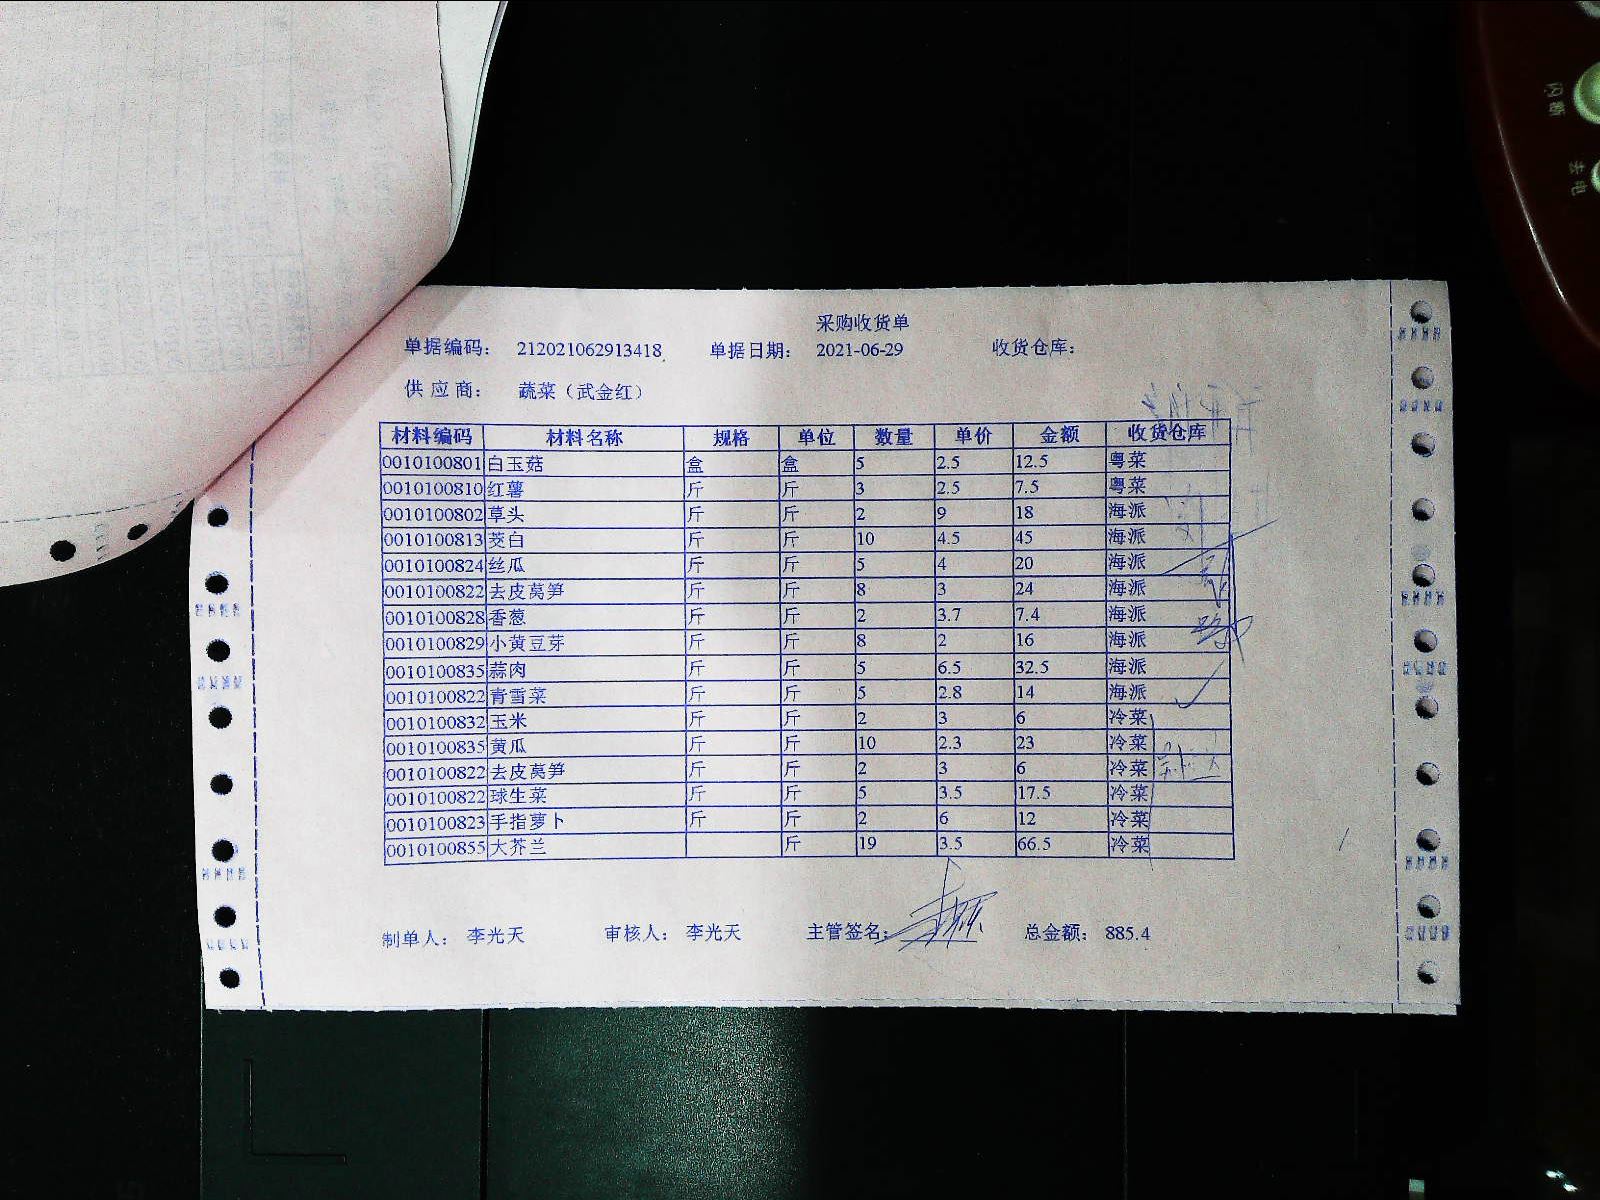 采购收货单
单据编码： 212021062913418 单据日期： 2021-06-29 收货仓库：
供 应 商： 蔬菜（武金红）
材料编码 材料名称 规格 单位 数量 单价 金额 收货仓库
0010100801 白玉菇 盒 盒 5 2.5 12.5 粤菜
0010100810 红薯 斤 斤 3 2.5 7.5 粤菜
0010100802 草头 斤 斤 2 9 18 海派
0010100813 茭白 斤 斤 10 4.5 45 海派
0010100824 丝瓜 斤 斤 5 4 20 海派
0010100822 去皮莴笋 斤 斤 8 3 24 海派
0010100828 香葱 斤 斤 2 3.7 7.4 海派
0010100829 小黄豆芽 斤 斤 8 2 16 海派
0010100835 蒜肉 斤 斤 5 6.5 32.5 海派
0010100822 青雪菜 斤 斤 5 2.8 14 海派
0010100832 玉米 斤 斤 2 3 6 冷菜
0010100835 黄瓜 斤 斤 10 2.3 23 冷菜
0010100822 去皮莴笋 斤 斤 2 3 6 冷菜
0010100822 球生菜 斤 斤 5 3.5 17.5 冷菜
0010100823 手指萝卜 斤 斤 2 6 12 冷菜
0010100855 大芥兰 斤 19 3.5 66.5 冷菜
制单人： 李光天 审核人： 李光天 主管签名： 总金额： 885.4